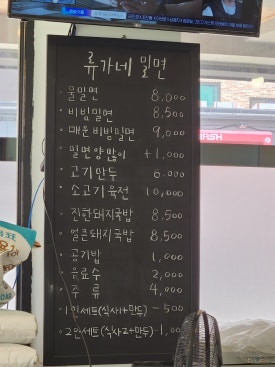 류가네 밀면
물밀면 8,000
· 비빔밀면 8,500
· 매운 비빔밀면 9,000
· 밀면 양많이 +1,000
· 고기만두 6.000
· 소고기 육전 10,000
· 진한돼지국밥 8.500
· 얼큰돼지국밥 8,500
· 공기밥 1,000
· 음료수 2,000
· 주 류 4,000
· 1인세트(식사+만두) -500
· 2인세트(식사2+만두) -1,000